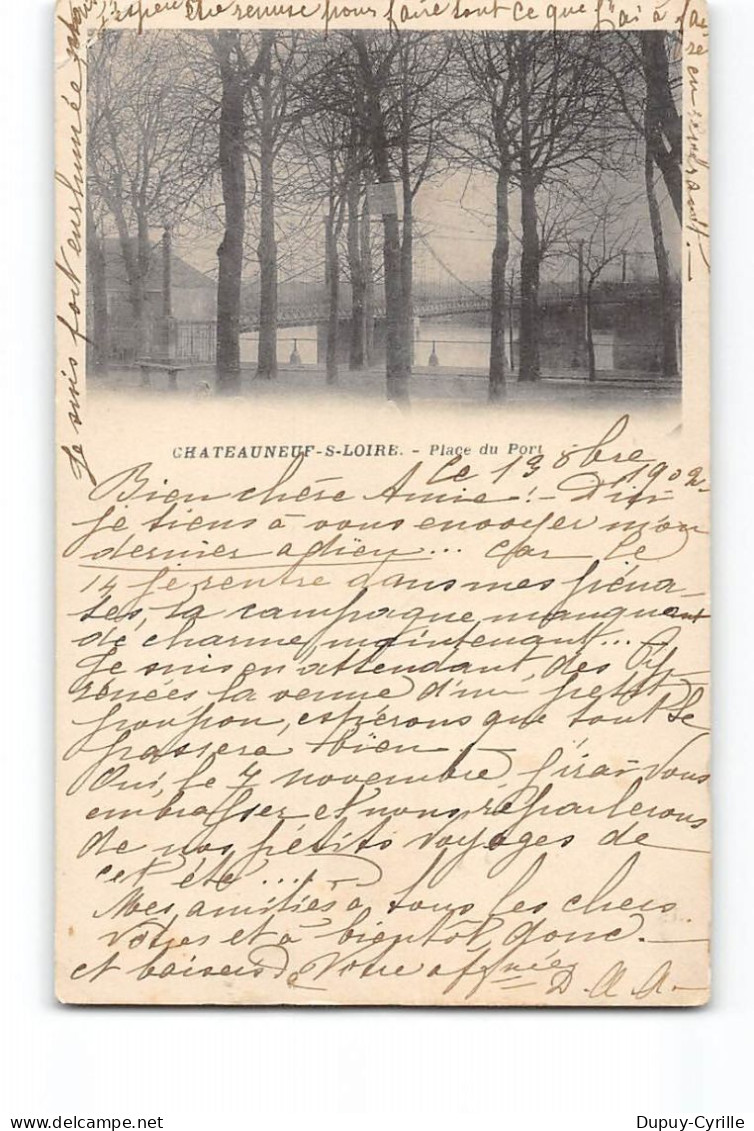 CHATEAUNEUF-S-LOIRE. - Place du Port
Le 13 8bre 1902
Bien chère Amie! - D
je tiens à vous envoyer mon
dernier adieu... car le
14 je rentre dans mes péna-
tes, la campagne manquant
de charme, maintenant...
Je suis en attendant, des Pyr-
rénées la venue d'un petit
poupon, espérons que tout se
passera bien! -
Oui, le 7 novembre, j'irai vous
embrasser et nous reparlerons
de nos petits voyages de
cet été...
Mes amitiés à tous les chers
vôtres et à bientôt, donc. -
et baisers de Votre affnée D. A. A. -
Je suis fort enrhumée
J'espère être remise pour faire tout ce que j'ai à faire en
Dupuy-Cyrille